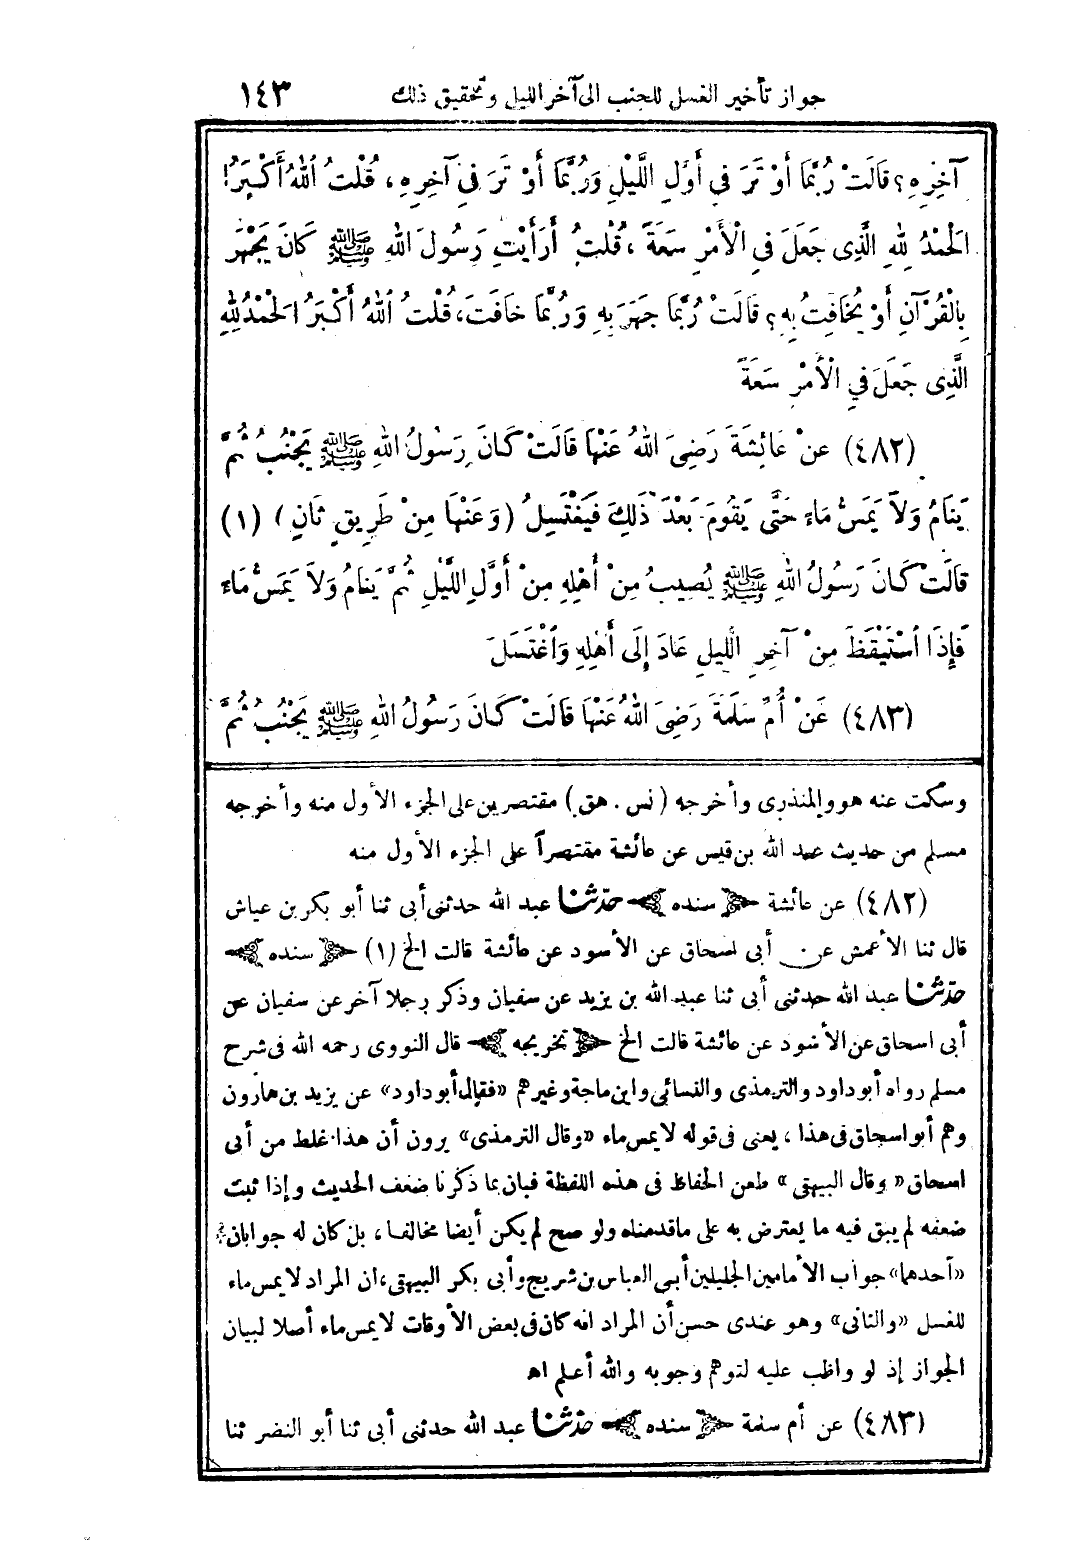 جواز تأخير الغسل للجنب الى آخر الليل وتحقيق ذلك ١٤٣
آخِرِهِ؟ قَالَتْ رُبَّمَا أَوْ تَرَ فِي أَوَّلِ اللَّيْلِ وَرُبَّمَا أَوْ تَرَ فِي آخِرِهِ، قُلْتُ اللهُ أَكْبَرُ!
الْحَمْدُ لِلهِ الَّذِى جَعَلَ فِي الْأَمْرِ سَعَةً، قُلْتُ أَرَأَيْتِ رَسُولَ اللهِ ﷺ كَانَ يَجْهَرُ
بِالْقُرْآنِ أَوْ يُخَافِتُ بِهِ؟ قَالَتْ رُبَّمَا جَهَرَ بِهِ وَرُبَّمَا خَافَتَ، قُلْتُ اللهُ أَكْبَرُ الْحَمْدُ لِلهِ
الَّذِى جَعَلَ فِي الْأَمْرِ سَعَةً
(٤٨٢) عَنْ عَائِشَةَ رَضِىَ اللهُ عَنْهَا قَالَتْ كَانَ رَسُولُ اللهِ ﷺ يَجْنُبُ ثُمَّ
يَنَامُ وَلَا يَمَسُّ مَاءً حَتَّى يَقُومَ بَعْدَ ذَلِكَ فَيَغْتَسِلُ (وَعَنْهَا مِنْ طَرِيقٍ ثَانٍ) (١)
قَالَتْ كَانَ رَسُولُ اللهِ ﷺ يُصِيبُ مِنْ أَهْلِهِ مِنْ أَوَّلِ اللَّيْلِ ثُمَّ يَنَامُ وَلَا يَمَسُّ مَاءً
فَإِذَا اسْتَيْقَظَ مِنْ آخِرِ اللَّيْلِ عَادَ إِلَى أَهْلِهِ وَاغْتَسَلَ
(٤٨٣) عَنْ أُمِّ سَلَمَةَ رَضِىَ اللهُ عَنْهَا قَالَتْ كَانَ رَسُولُ اللهِ ﷺ يَجْنُبُ ثُمَّ
وسكت عنه هو والمنذرى وأخرجه (نس . هق) مقتصرين على الجزء الأول منه وأخرجه
مسلم من حديث عبد الله بن قيس عن عائشة مقتصراً على الجزء الأول منه
(٤٨٢) عن عائشة ﴿ سنده ﴾ حدثنا عبد الله حدثنى أبى ثنا أبو بكر بن عياش
قال ثنا الأعمش عن أبى اسحاق عن الأسود عن عائشة قالت الخ (١) ﴿ سنده ﴾
حدثنا عبد الله حدثنى أبى ثنا عبد الله بن يزيد عن سفيان وذكر رجلا آخر عن سفيان عن
أبى اسحاق عن الأسود عن عائشة قالت الخ ﴿ تخريجه ﴾ قال النووى رحمه الله فى شرح
مسلم رواه أبو داود والترمذى والنسائى وابن ماجة وغيرهم «فقال أبو داود» عن يزيد بن هارون
وهم أبو اسحاق فى هذا ، يعنى فى قوله لا يمس ماء «وقال الترمذى» يرون أن هذا غلط من أبى
اسحاق « وقال البيهقى » طعن الحفاظ فى هذه اللفظة فبان بما ذكرنا ضعف الحديث وإذا ثبت
ضعفه لم يبق فيه ما يعترض به على ماقدمناه ولو صح لم يكن أيضا مخالفا ، بل كان له جوابان
«أحدهما» جواب الأمامين الجليلين أبى العباس بن شريح وأبى بكر البيهقى، ان المراد لا يمس ماء
للغسل «والثانى» وهو عندى حسن أن المراد انه كان فى بعض الأوقات لا يمس ماء أصلا لبيان
الجواز إذ لو واظب عليه لتوهم وجوبه والله أعلم اه
(٤٨٣) عن أم سلمة ﴿ سنده ﴾ حدثنا عبد الله حدثنى أبى ثنا أبو النضر ثنا